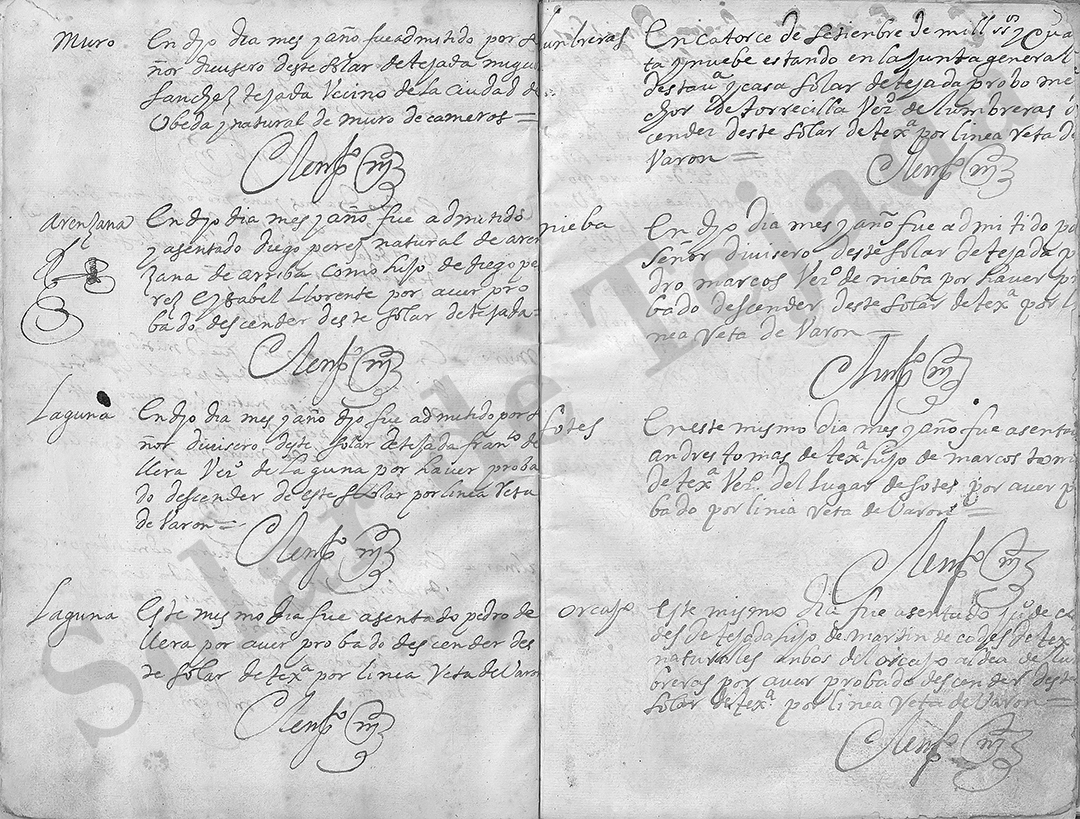 Muro
En dho dia mes y año fue admitido por se
ñor divisero deste solar de tejada migu
Sanchez tejada Vecino de la ciudad de
Obeda y natural de muro de cameros =
arenzana
En dho dia mes y año fue admitido
y asentado diego perez natural de aren
zana de arriba como hijo de diego pe
rez e ysabel Llorente por aver pro
bado descender deste solar de tejada =
Laguna
En dho dia mes y año dho fue admitido por se
ñor divisero deste solar de tejada franco de
llera Vezo de Laguna por haver proba
do descender de este solar por linea Reta
de Varon =
Laguna
Este mismo dia fue asentado pedro de
llera por aver probado descender des
te solar de texa por linea Reta de Varon
lunbreras
En catorce de Setienbre de mill
ta y nuebe estando en la junta general
desta casa Solar de tejada probo me
chor de torrecilla Vezo de lumbreras
cender deste solar de texa por linea Reta de
Varon =
nieba
En dho dia mes y año fue admitido po
Señor divisero deste solar de tejada p
dro marcos Vezo de nieba por haver pr
bado descender deste solar de texa por li
nea Reta de Varon =
sotes
En este mismo dia mes y año fue asenta
andres tomas de texa hijo de marcos tom
de texa Vezo del Lugar de sotes por aver p
bado por linea Reta de Varon =
orcajo
Este mismo dia fue asentado juo de co
des de tejada hijo de martin de codes de tex
naturales anbos del orcajo aldea de lun
breras por aver probado descender deste
solar de texa por linea Reta de Varon =
Solar de Tejada